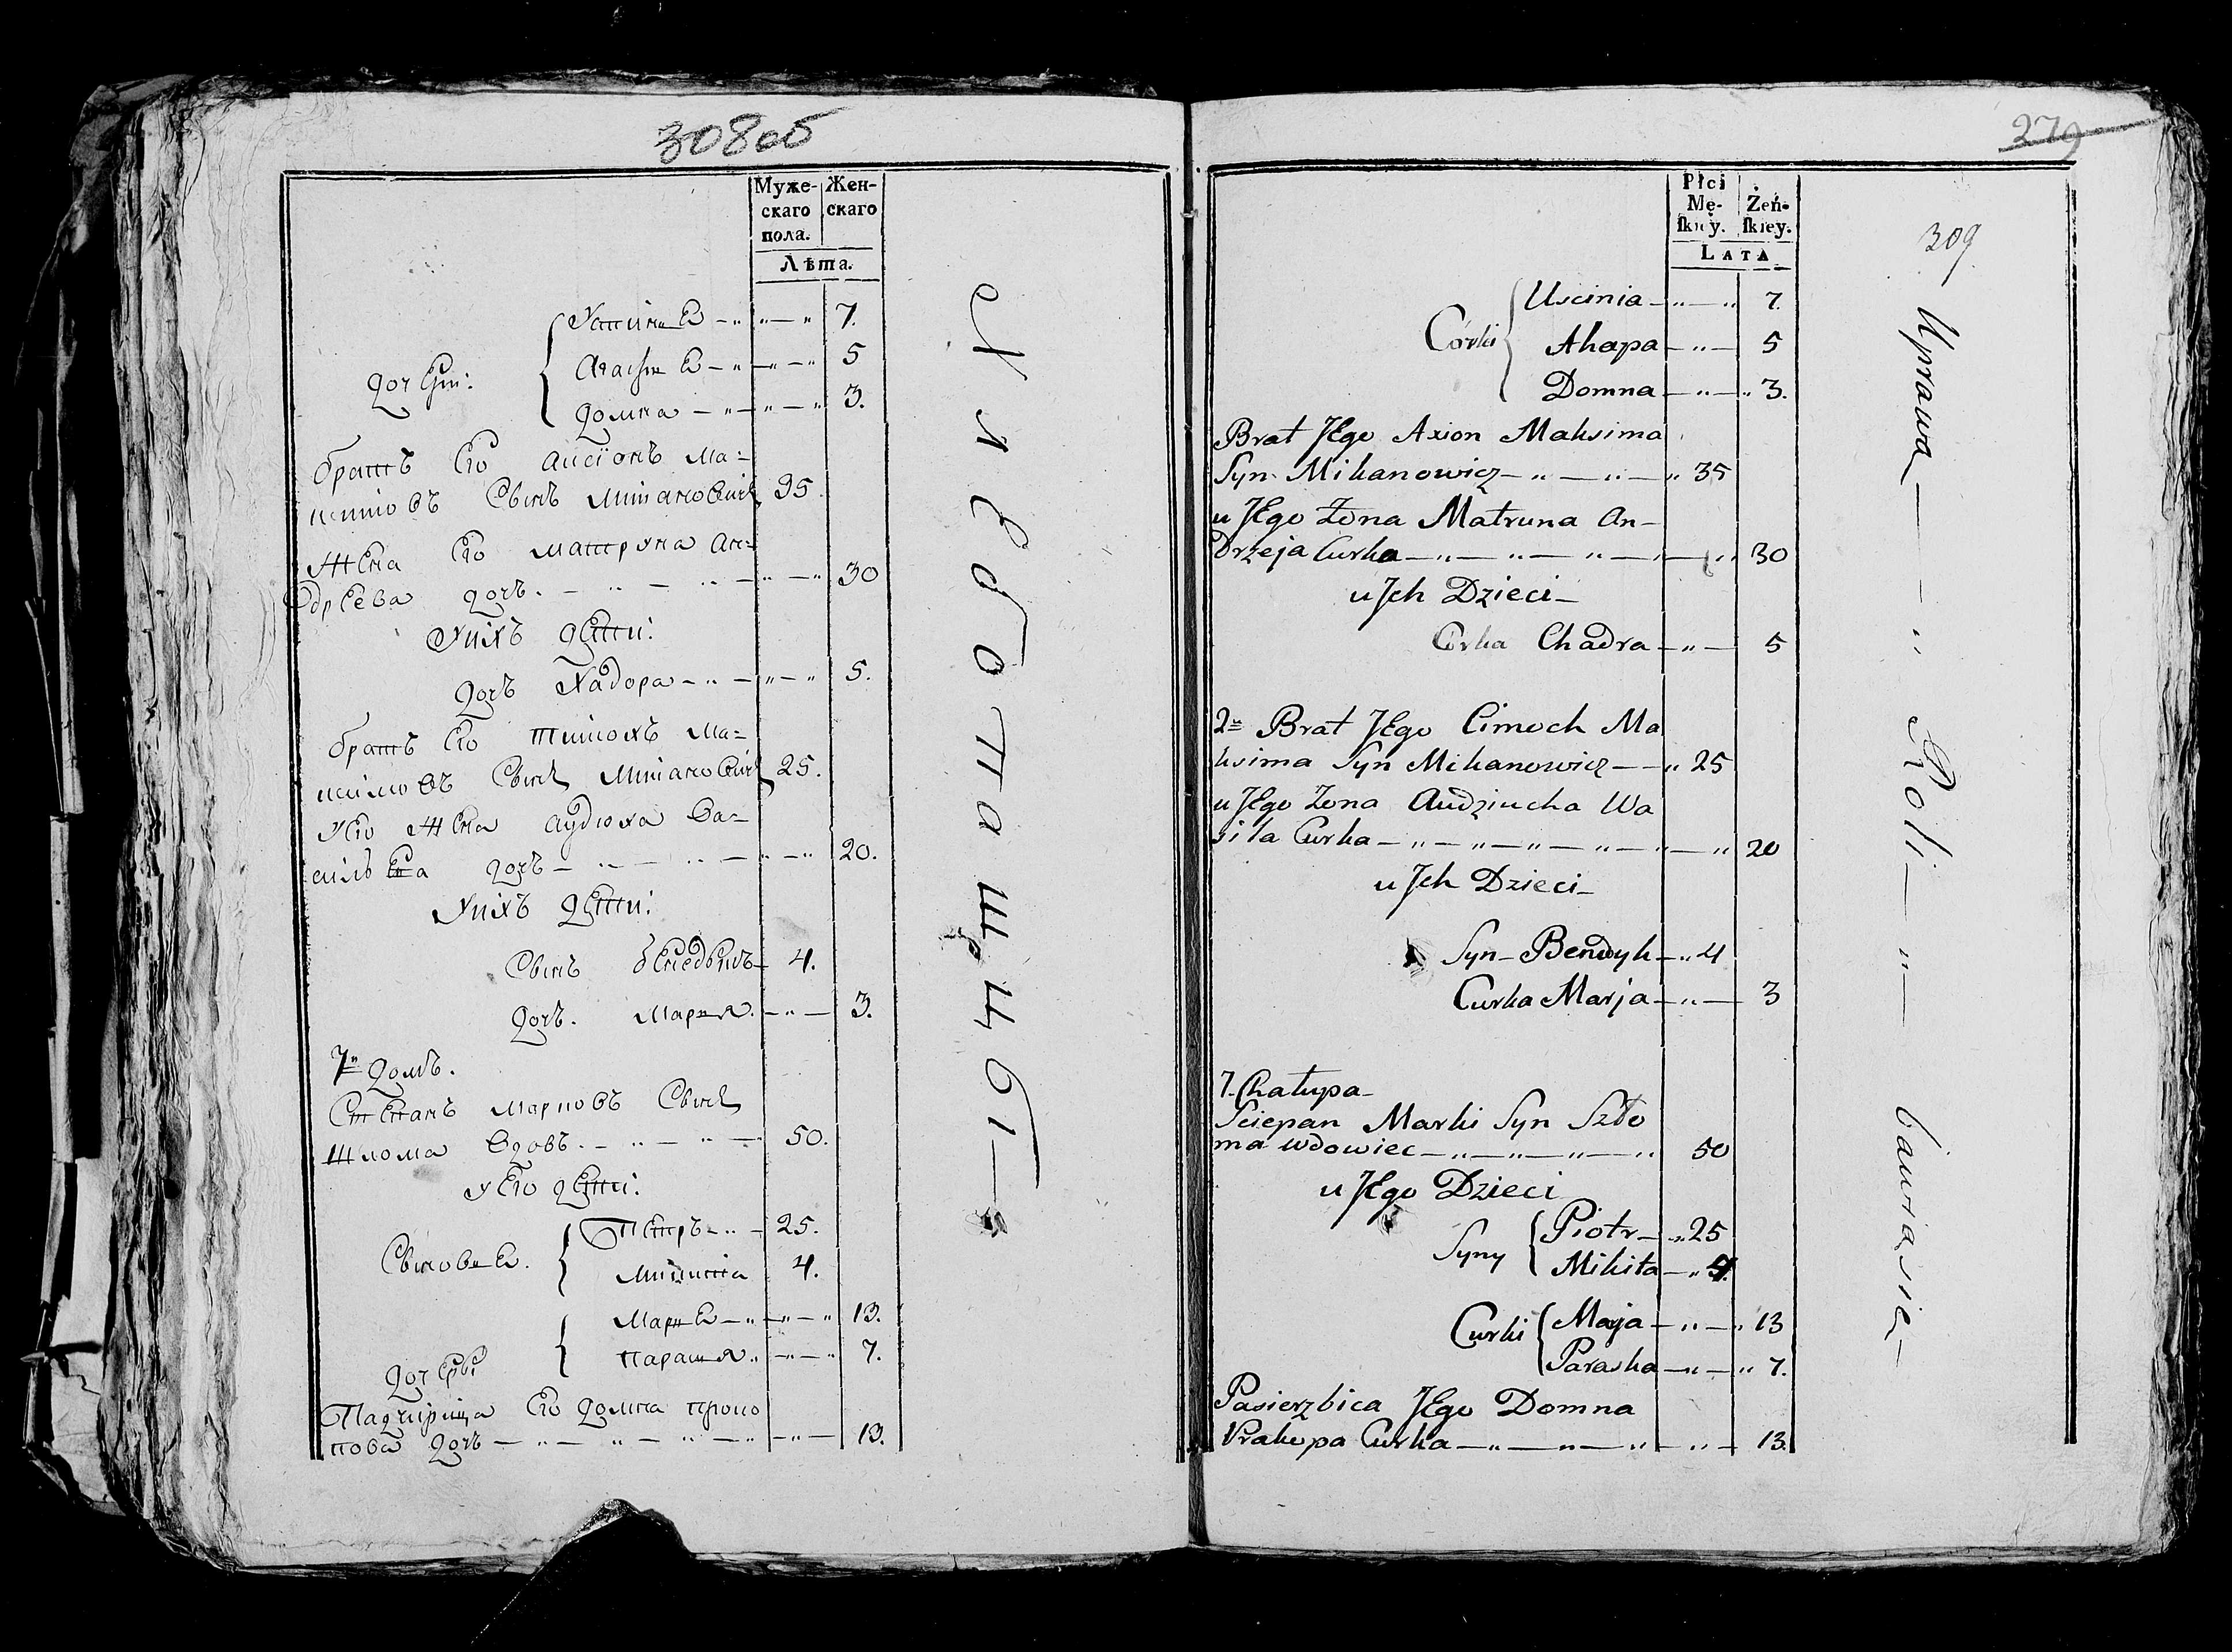 308об
Муже-
скаго
пола.
Жен-
скаго
Лѣта.
дочери:
Устинья 7.
Агафья 5
Домна 3.
братъ Его Аксіонъ Ма=
ксимовъ Сынъ Микановичъ 35.
Жена Его Матруна Ан=
дреева дочь. 30
У нихъ дети:
дочь Хадора 5.
братъ Его Тимохъ Ма=
ксимовъ Сынъ Микановичъ 25.
У Его Жена Аудюха Ва=
сильева дочь 20.
У нихъ дети:
Сынъ 4.
дочь. Мария. 3.
7й Домъ.
Степанъ Марковъ Сынъ
Шлома вдовъ. 50.
у Его дети:
Сыновья.
Петръ 25.
Микита 4.
дочеры
Марья 13.
Параскя 7.
Падчирица Его Домна Проко
пова дочь 13.
Хлебопашцы
279
309
Płci
Mę-
skiey.
Żeń-
skiey.
LATA
Córki
Uscinia 7.
Ahapa 5
Domna 3.
Brat JEgo Axion Maksima
Syn Mikanowicz 35
u JEgo Żona Matruna An-
drzeja Curka 30
u Jch Dzieci
Curka Chadra 5
2u Brat JEgo Cimoch Ma
ksima Syn Mikanowicz 25
u JEgo Żona Audziucha Wa
sila Curka 20
u Jch Dzieci
Syn Bendyk 4
Curka Marja 3
7. Chałupa
Sciepan Marki Syn Szło
ma wdowiec 50
u JEgo Dzieci
Syny
Piotr 25
Mikita 4.
Curki
Marja 13
Paraska 7.
Pasierzbica JEgo Domna
Prakopa Curka 13.
Uprawą Roli bawią się